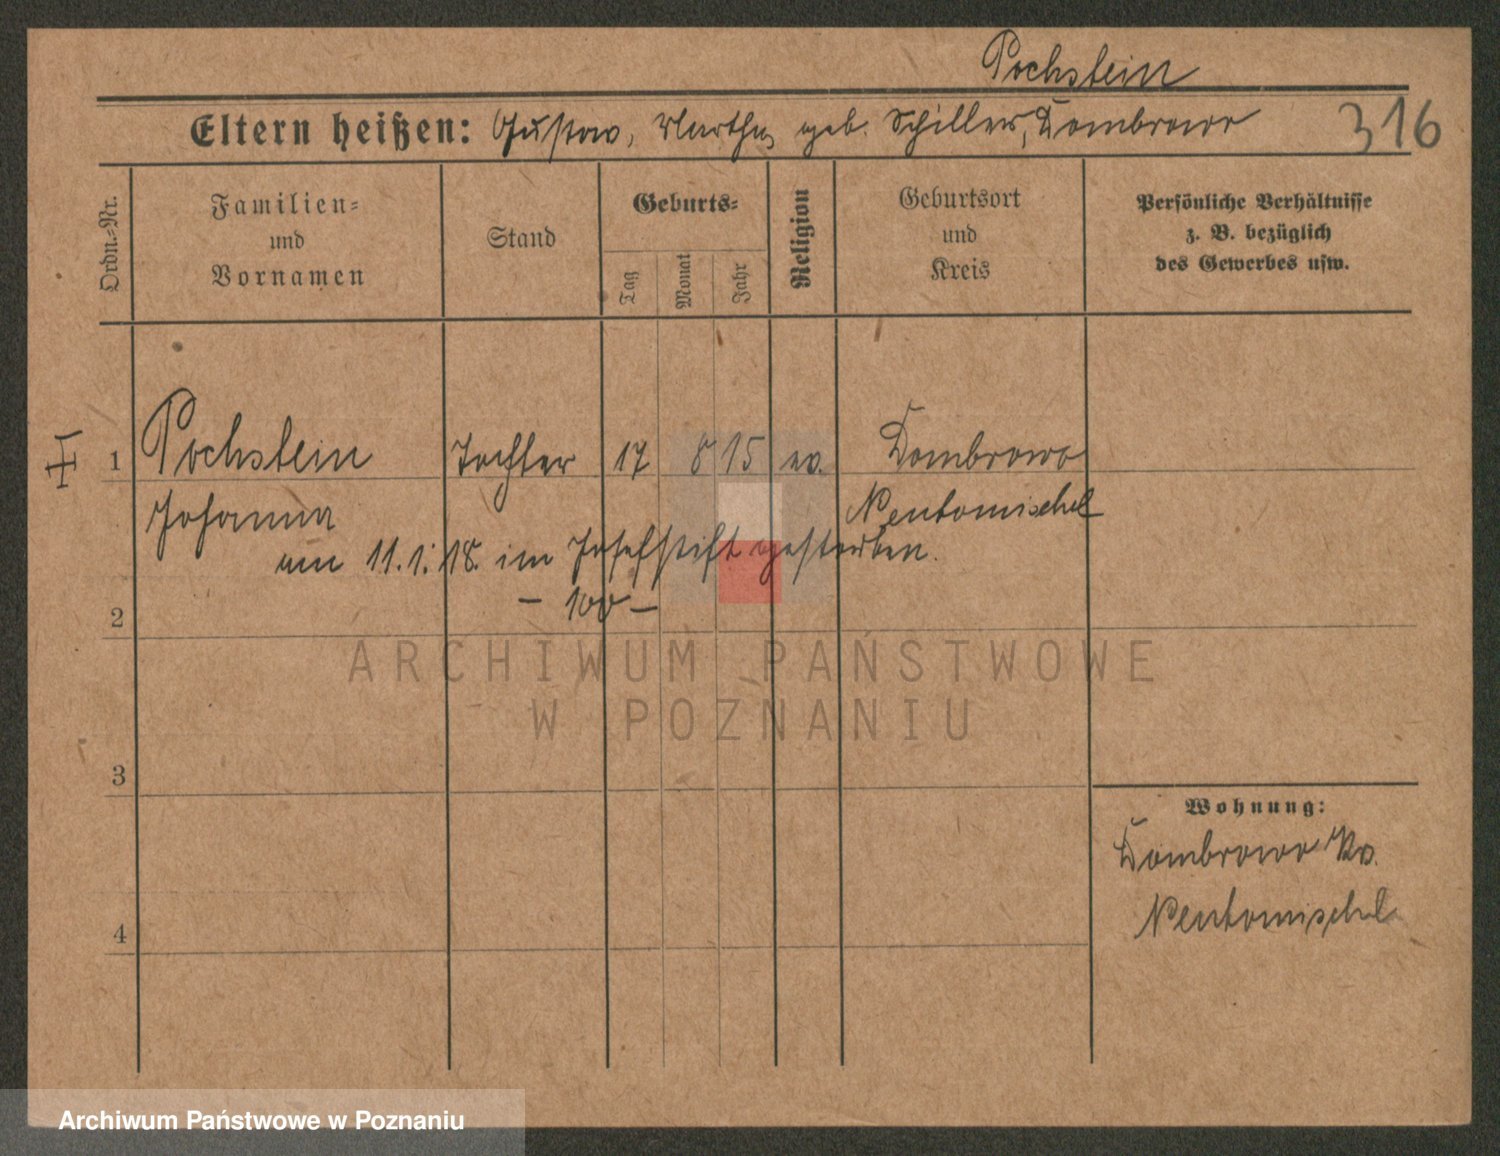 Pochstein
Eltern heißen: Gustav, Martha geb. Schiller, Dombrowo 316
Ordn.-Nr.
Familien-
und
Vornamen
Stand
Geburts-
Tag
Monat
Jahr
Religion
Geburtsort
und
Kreis
Persönliche Verhältnisse
z. B. bezüglich
des Gewerbes usw.
1 Pochstein Tochter 17 8 15 ev. Dombrowo
Johanna Neutomischel
am 11.1.18. im Josefstift gestorben.
— 100 —
2
ARCHIWUM PAŃSTWOWE
W POZNANIU
3
Wohnung:
Dombrowo Kr.
Neutomischel
4
Archiwum Państwowe w Poznaniu